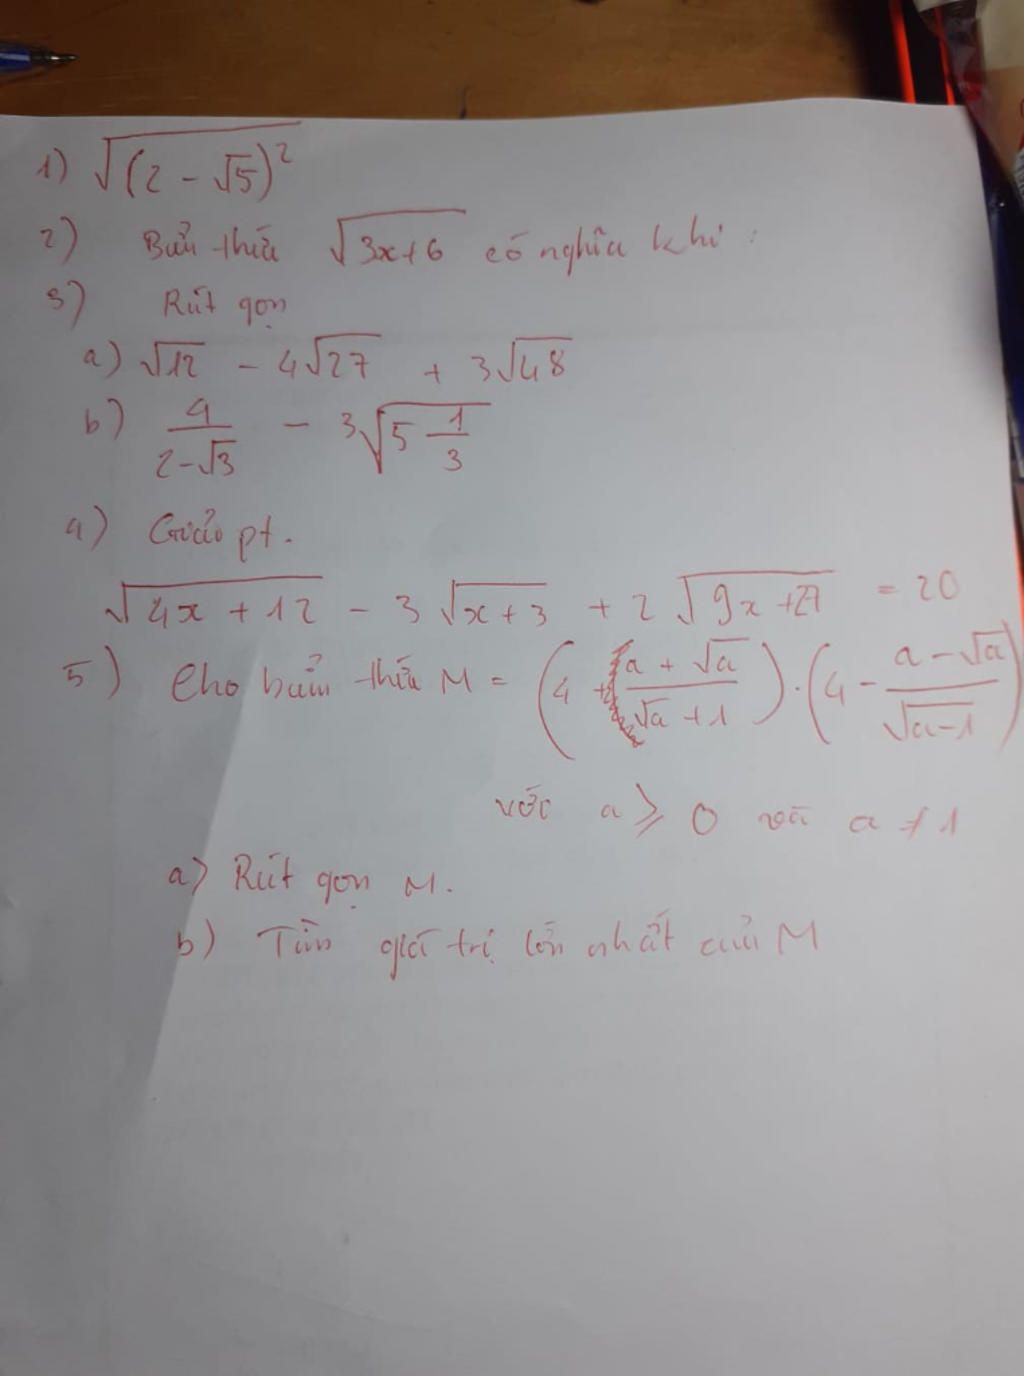 1) √(2 - √5)²
2) Biểu thức √3x+6 có nghĩa khi :
3) Rút gọn
a) √12 - 4√27 + 3√48
b) 4/(2-√3) - 3√(5 1/3)
4) Giải pt.
√4x + 12 - 3√x+3 + 2√9x+27 = 20
5) Cho biểu thức M = (4 + (a + √a)/(√a + 1)) . (4 - (a - √a)/(√a-1))
với a ≥ 0 và a ≠ 1
a) Rút gọn M.
b) Tìm giá trị lớn nhất của M